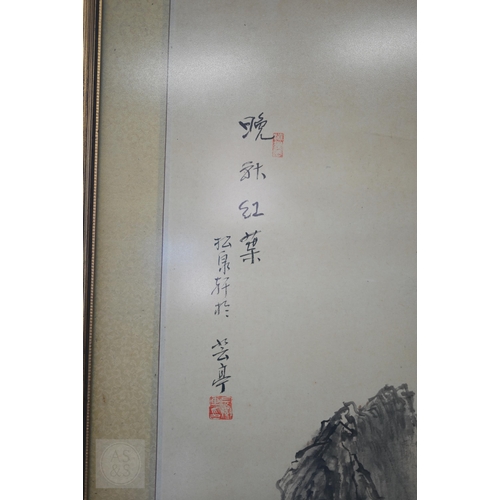 晩秋紅葉
松泉軒於
芸亭